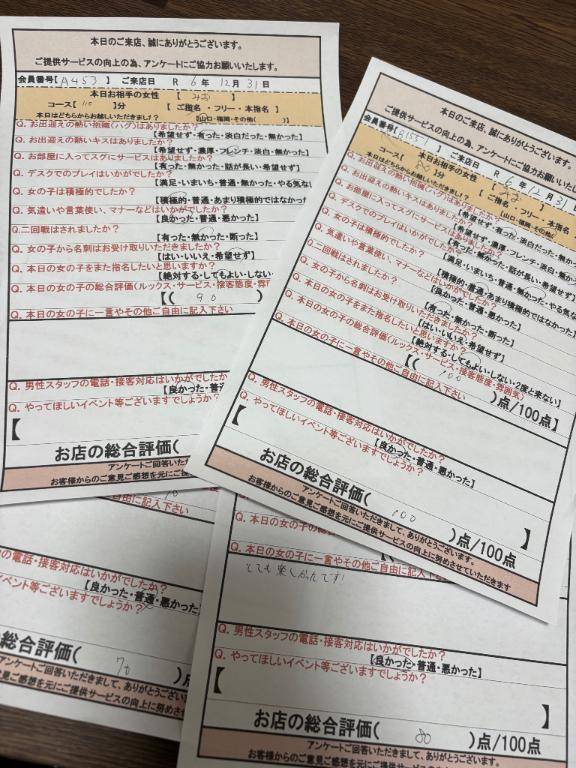 本日のご来店、誠にありがとうございます。
ご提供サービスの向上の為、アンケートにご協力お願いいたします。
会員番号【A453】 ご来店日 R 6年 12月 31日
本日お相手の女性 【
コース【110 】分 【 ご指名・フリー・本指名】
本日はどちらからお越しいただきましたか?
Q. お出迎えの熱い抱擁(ハグ)はありましたか?
【希望せず・有った・淡白だった・無かった】
Q. お出迎えの熱いキスはありましたか?
【希望せず・濃厚・フレンチ・淡白・無かった】
Q. お部屋に入ってスグにサービスはありましたか?
【希望せず・有った・話が長い・希望せず】
Q. デスクでのプレイはいかがでしたか?
【満足・いまいち・普通・無かった・やる気な
Q. 女の子は積極的でしたか?
【積極的・普通・あまり積極的ではなかった】
Q. 気遣いや言葉使い、マナーなどはいかがでしたか?
【良かった・普通・悪かった】
Q. 二回戦はされましたか?
【有った・無かった・断った】
Q. 女の子から名刺はお受け取りいただきましたか?
【はい・いいえ・希望せず】
Q. 本日の女の子をまた指名したいと思いますか?
【絶対する・してもよい・しない・
Q. 本日の女の子の総合評価(ルックス・サービス・接客態度・雰囲
【( 90
Q. 本日の女の子に一言やその他ご自由に記入下さい
Q. 男性スタッフの電話・接客対応はいかがでしたか
【良かった・普
Q. やってほしいイベント等ございますでしょうか?
【
お店の総合評価(
アンケートご回答いただ
お客様からのご意見ご感想を元に
本日のご来店、誠にありがとうございます。
ご提供サービスの向上の為、アンケートにご協力お願いいたします。
会員番号【 】 ご来店日 R 6年 12月 31日
本日お相手の女性 【
コース【 】分 【 ご指名・フリー・本指名】
本日はどちらからお越しいただけました?
【山口・福岡・その他(
Q. お出迎えの熱い抱擁(ハグ)はありましたか?
【希望せず・有った・淡白だった・無かった】
Q. お出迎えの熱いキスはありましたか?
【希望せず・濃厚・フレンチ・淡白・無かった】
Q. お部屋に入ってスグにサービスはありましたか?
【希望せず・有った・話が長い・希望せず】
Q. デスクでのプレイはいかがでしたか?
【満足・いまいち・普通・無かった・やる気
Q. 女の子は積極的でしたか?
【積極的・普通・あまり積極的ではなかった】
Q. 気遣いや言葉使い、マナーなどはいかがでしたか?
【良かった・普通・悪かった】
Q. 二回戦はされましたか?
【有った・無かった・断った】
Q. 女の子から名刺はお受け取りいただきましたか?
【はい・いいえ・希望せず】
Q. 本日の女の子をまた指名したいと思いますか?
【絶対する・してもよい・しない・2度と来ない】
Q. 本日の女の子の総合評価(ルックス・サービス・接客態度・雰囲気)
【( 100 )点/100点】
Q. 本日の女の子に一言やその他ご自由に記入下さい
Q. 男性スタッフの電話・接客対応はいかがでしたか?
【良かった・普通・悪かった】
Q. やってほしいイベント等ございますでしょうか?
【 】
お店の総合評価( 100 )点/100点
アンケートご回答いただきまして、ありがとうございます。
お客様からのご意見ご感想を元にサービスの向上に努めさせていただきます
ご自由に記入下さい
の電話・接客対応はいかがでしたか?
【良かった・普通・悪かった】
イベント等ございますでしょうか?
総合評価( 70 )点/
アンケートご回答いただきまして、ありがとうござい
ご意見ご感想を元にサービスの向上に努めさ
Q. 本日の女の子の総
Q. 本日の女の子に一言やその他ご自由に記入下
とても楽しかったです!
Q. 男性スタッフの電話・接客対応はいかがでしたか?
【良かった・普通・悪かった】
Q. やってほしいイベント等ございますでしょうか?
【 】
お店の総合評価( 80 )点/100点
アンケートご回答いただきまして、ありがとうございます。
お客様からのご意見ご感想を元にサービスの向上に努めさせていただきます